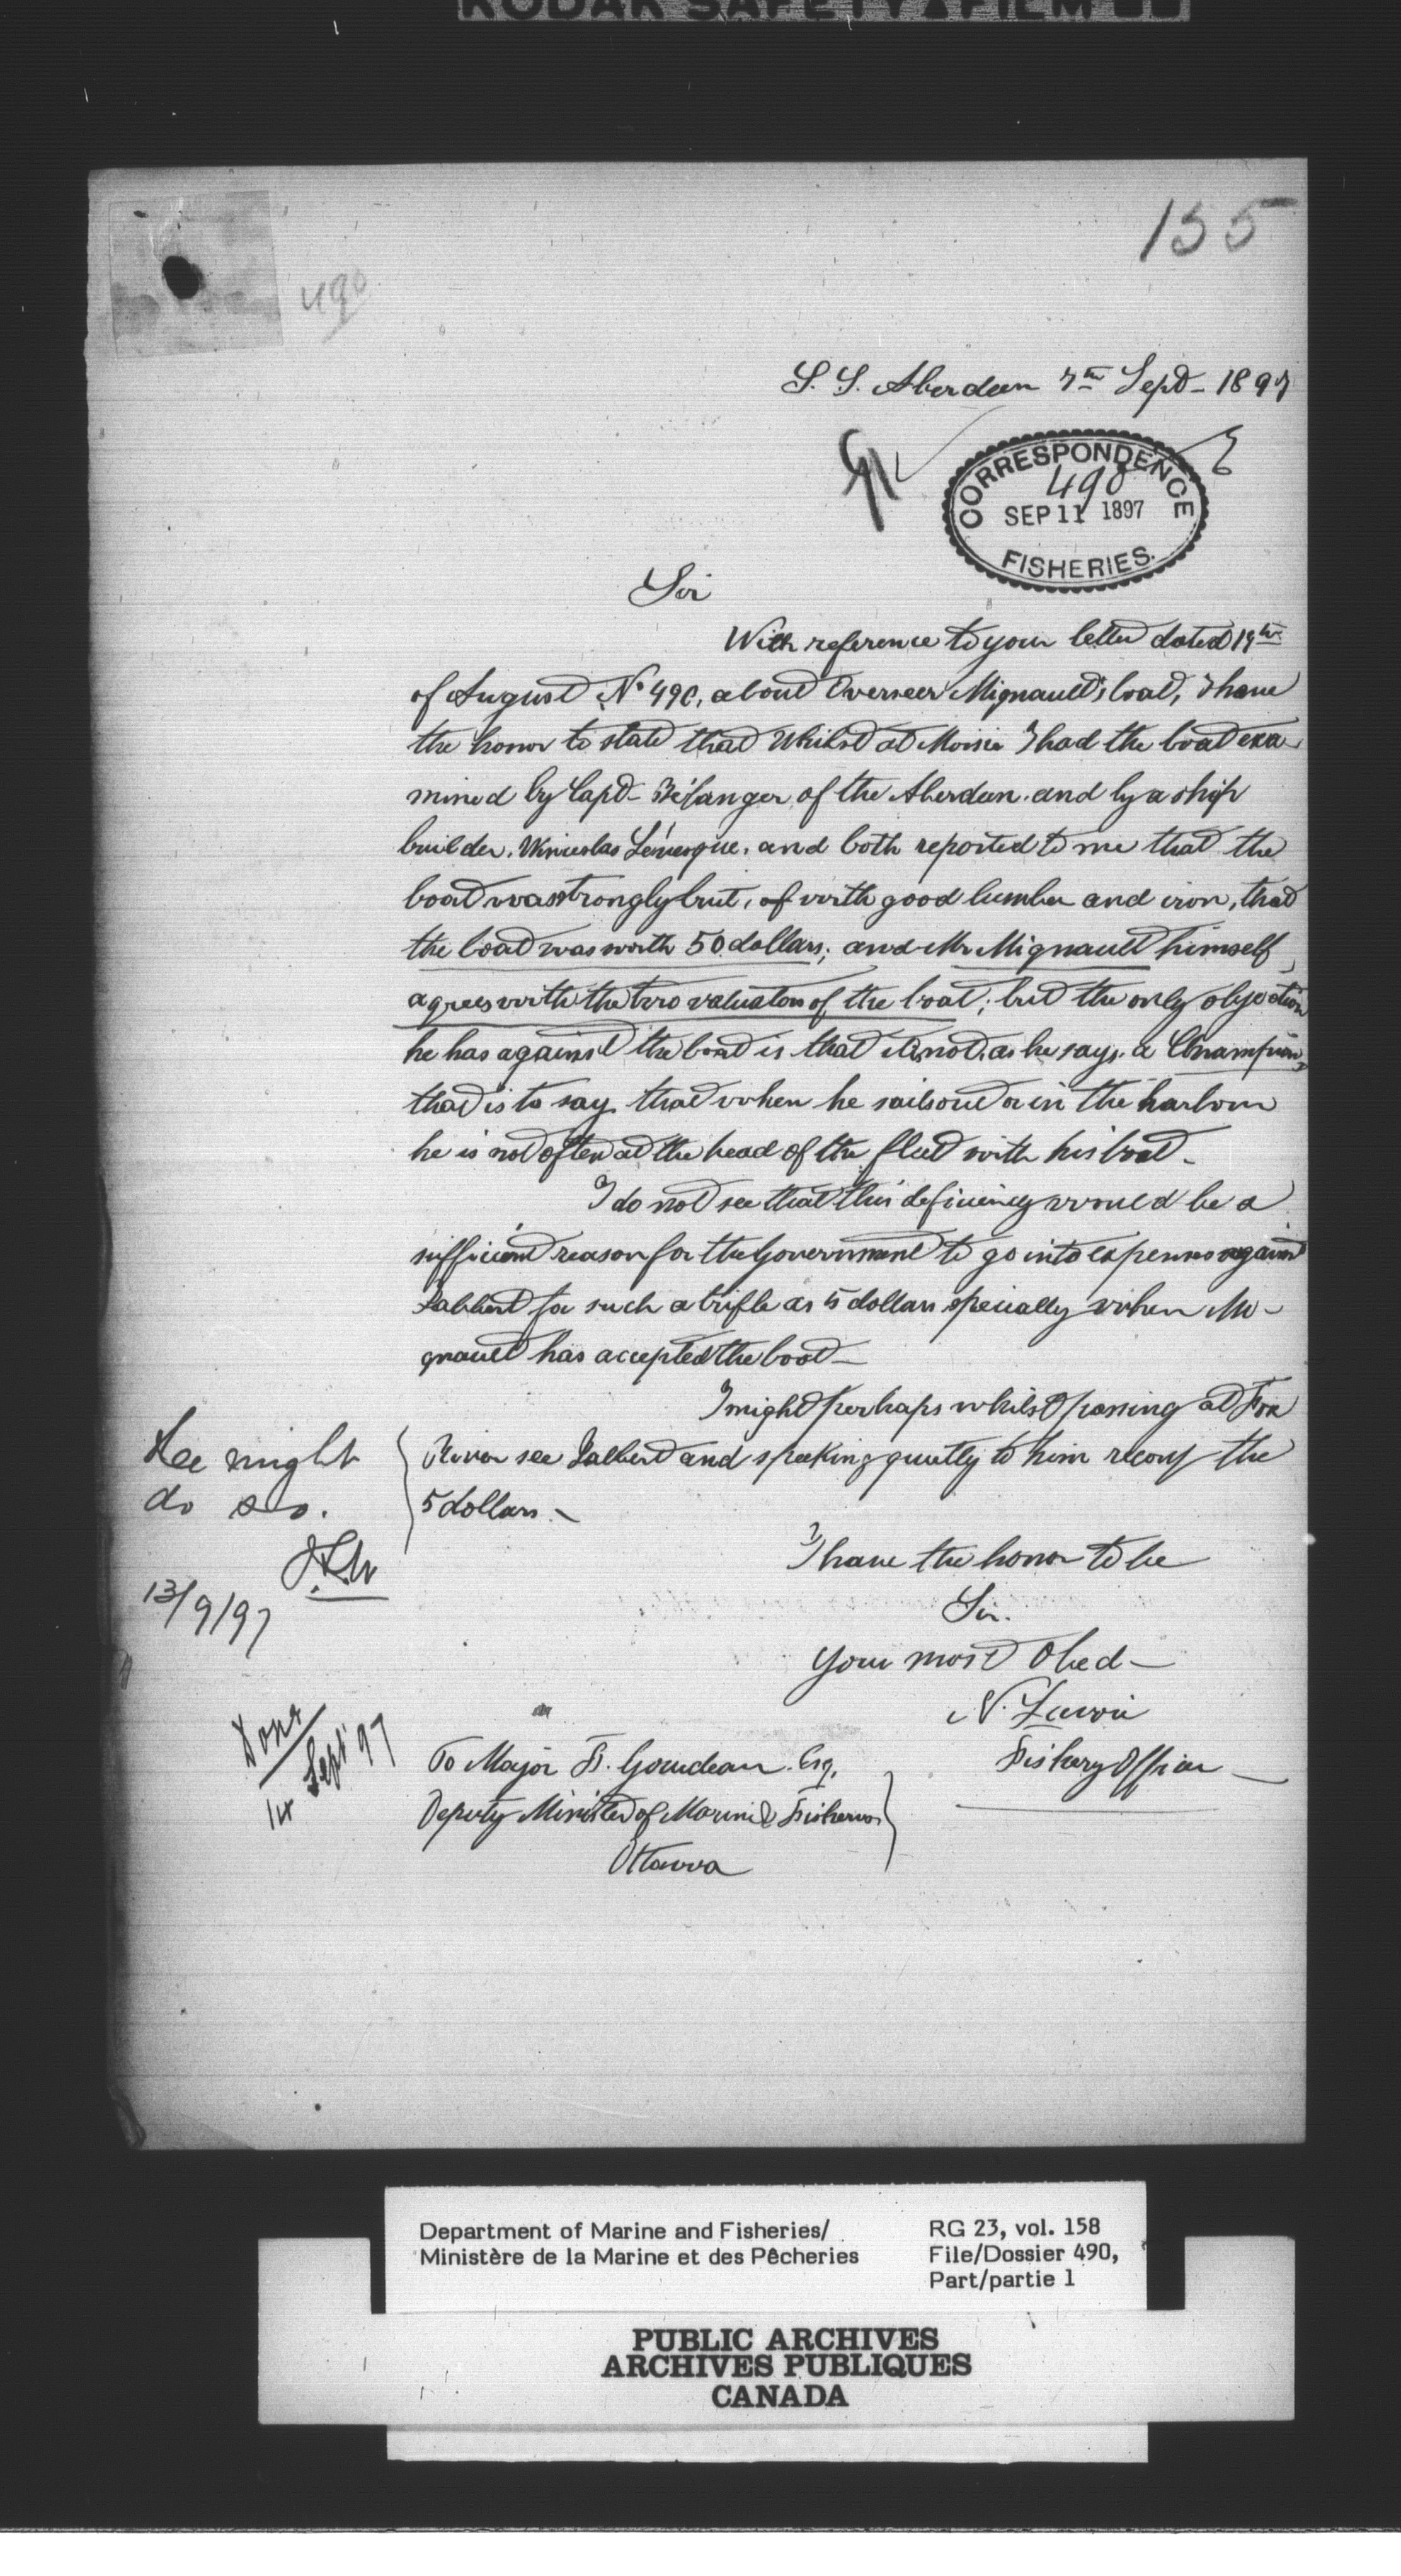 KODAK SAFETY FILM
155
490
S. S. Aberdeen 7th Sept- 1897
CORRESPONDENCE
490
SEP 11 1897
FISHERIES.
Sir
With reference to your letter dated 19th
of August No 490, about Overseer Mignault's boat, I have
the honor to state that whilst at Moisie I had the boat exa-
mined by Capt- Bélanger of the Aberdeen. and by a ship
builder, Winceslas Lévesque, and both reported to me that the
boat was strongly buit, of with good lumber and iron, that
the boat was worth 50 dollars; and Mr Mignault himself,
agrees with the two valuators of the boat; but the only objection
he has against the boat is that it is not, as he says, a Champion,
that is to say that when he sails out or in the harbour
he is not often at the head of the fleet with his boat-
I do not see that this deficiency would be a
sufficient reason for the Government to go into expenses against
Jalbert for such a trifle as 5 dollars specially when Mi-
gnault has accepted the boat-
I might perhaps whilst passing at Fox
River see Jalbert and speeking quietly to him recoup the
5 dollars.-
He might
do so.
13/9/97
Done
14 Sept '97
I have the honor to be
Sir.
Your most Obed-
N. Lavoie
Fishery Officer
To Major F. Gourdeau. Esq.
Deputy Minister of Marine & Fisheries
Ottawa
Department of Marine and Fisheries/
Ministère de la Marine et des Pêcheries
RG 23, vol. 158
File/Dossier 490,
Part/partie 1
PUBLIC ARCHIVES
ARCHIVES PUBLIQUES
CANADA